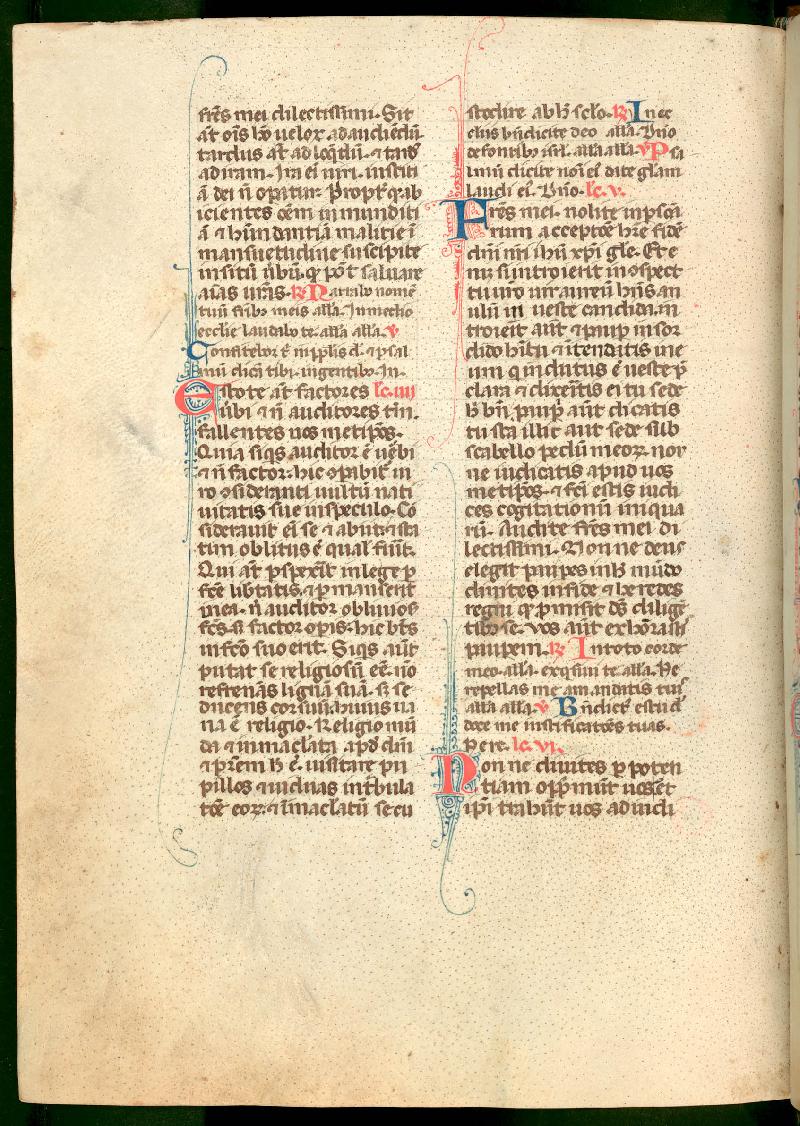 frēs mei dilectissimi. Sit
aut̄ oīs hō uelox ad audiēdū.
tardus aūt ad loq̄dū. ⁊ tard᷒
ad iram. Ira eī uiri. iusticiā
ā dei n̄ opatur. Propt̄ q᷒ ab
icientes oēm inmundici
ā ⁊ hūndantiā malicie ī
mansuetudine suscipite
insitū ūbū. q̄ pōt saluare
aīas urās. ℟ Narrabo nomē
tuū frīb᷒ meis allā. In medio
ecclīe laudabo te. allā allā. ℣
Confitebor t̄ ī pplīs d̄. ⁊ psal
mū dicā tibi. in gentib᷒. In.
Estote aūt factores lc̄. iiii
ūbi ⁊ n̄ auditores tm̄.
fallentes uos metip̄os.
Quia siq̄s auditor ē uērbi
⁊ n̄ factor. hic ꝯpabit᷒ ui
ro ꝯsideranti uultū nati
uitatis sue in speculo. Cō
siderauit eī se ⁊ abiit. ⁊ sta
tim oblitus ē qual᷒ fuit᷒.
Qui aūt ꝑspexīt in lege ꝑ
fc̄e lib̄tatis. ⁊ ꝑmanserit
in ea. n̄ auditor obliuios᷒
fc̄s. s᷒ factor opis. hic bt̄s
in fc̄o suo erit. Siq̄s aūt
putat se religiosū eē. nō
refrenās liguā suā. s᷒ se
ducens cor suū. huius ua
na ē religio. Religio mū
da ⁊ inmaclata apd̄ dm̄
⁊ p̄rem h̄ ē. uisitare pu
pillos ⁊ uiduas in t̄bula
tōe eoꝝ. ⁊ īmaclatū se cu
stodire ab h̄ sclo. ℟ In ec
clīis bn̄dicite deo allā. Dn̄o
de fontib᷒ isrl̄. allā allā. ℣ Psa
lmū dicite noī eī date glām
laudi eī. Dn̄o. lc̄. v.
Frēs mei. nolite in psōa
rum acceptōe hīe fidē
dn̄i nrī ihū xp̄i gl̄e. Et e
nī si introierit in ꝯspect
tu urō uir aureū hn̄s an
ulū in ueste candida. in
troierit aūt ⁊ paup in sor
dido hītu ⁊ ītendatis in e
um q indutus ē ueste p̄
clara ⁊ dixeritis ei tu sede
h̄ bn̄. paupi aūt dicatis
tu sta illic aut sede sub
scabello pedū meoꝝ. non
ne iudicatis apud uos
metip̄os. ⁊ fc̄i estis iudi
ces cogitationū iniqua
rū. Audite frēs mei di
lectissimi. Nonne deus
elegit paupes in h̄ mūdo
diuites in fide ⁊ he redes
regni q̄ pmisit d̄s dilige
tib᷒ se. vos aūt exhōrastis
paupem. ℟ In toto corde
meo. allā. exq̄siui te allā. Ne
repellas me a mandatis tuis
allā allā. ℣ Bn̄dict᷒ es tu d̄
doce me iustificatōes tuas.
Ne re. lc̄. vi.
Nonne diuites ꝑ poten
tiam opp̄mūt uos ⁊
ip̄i trahūt uos ad iudi